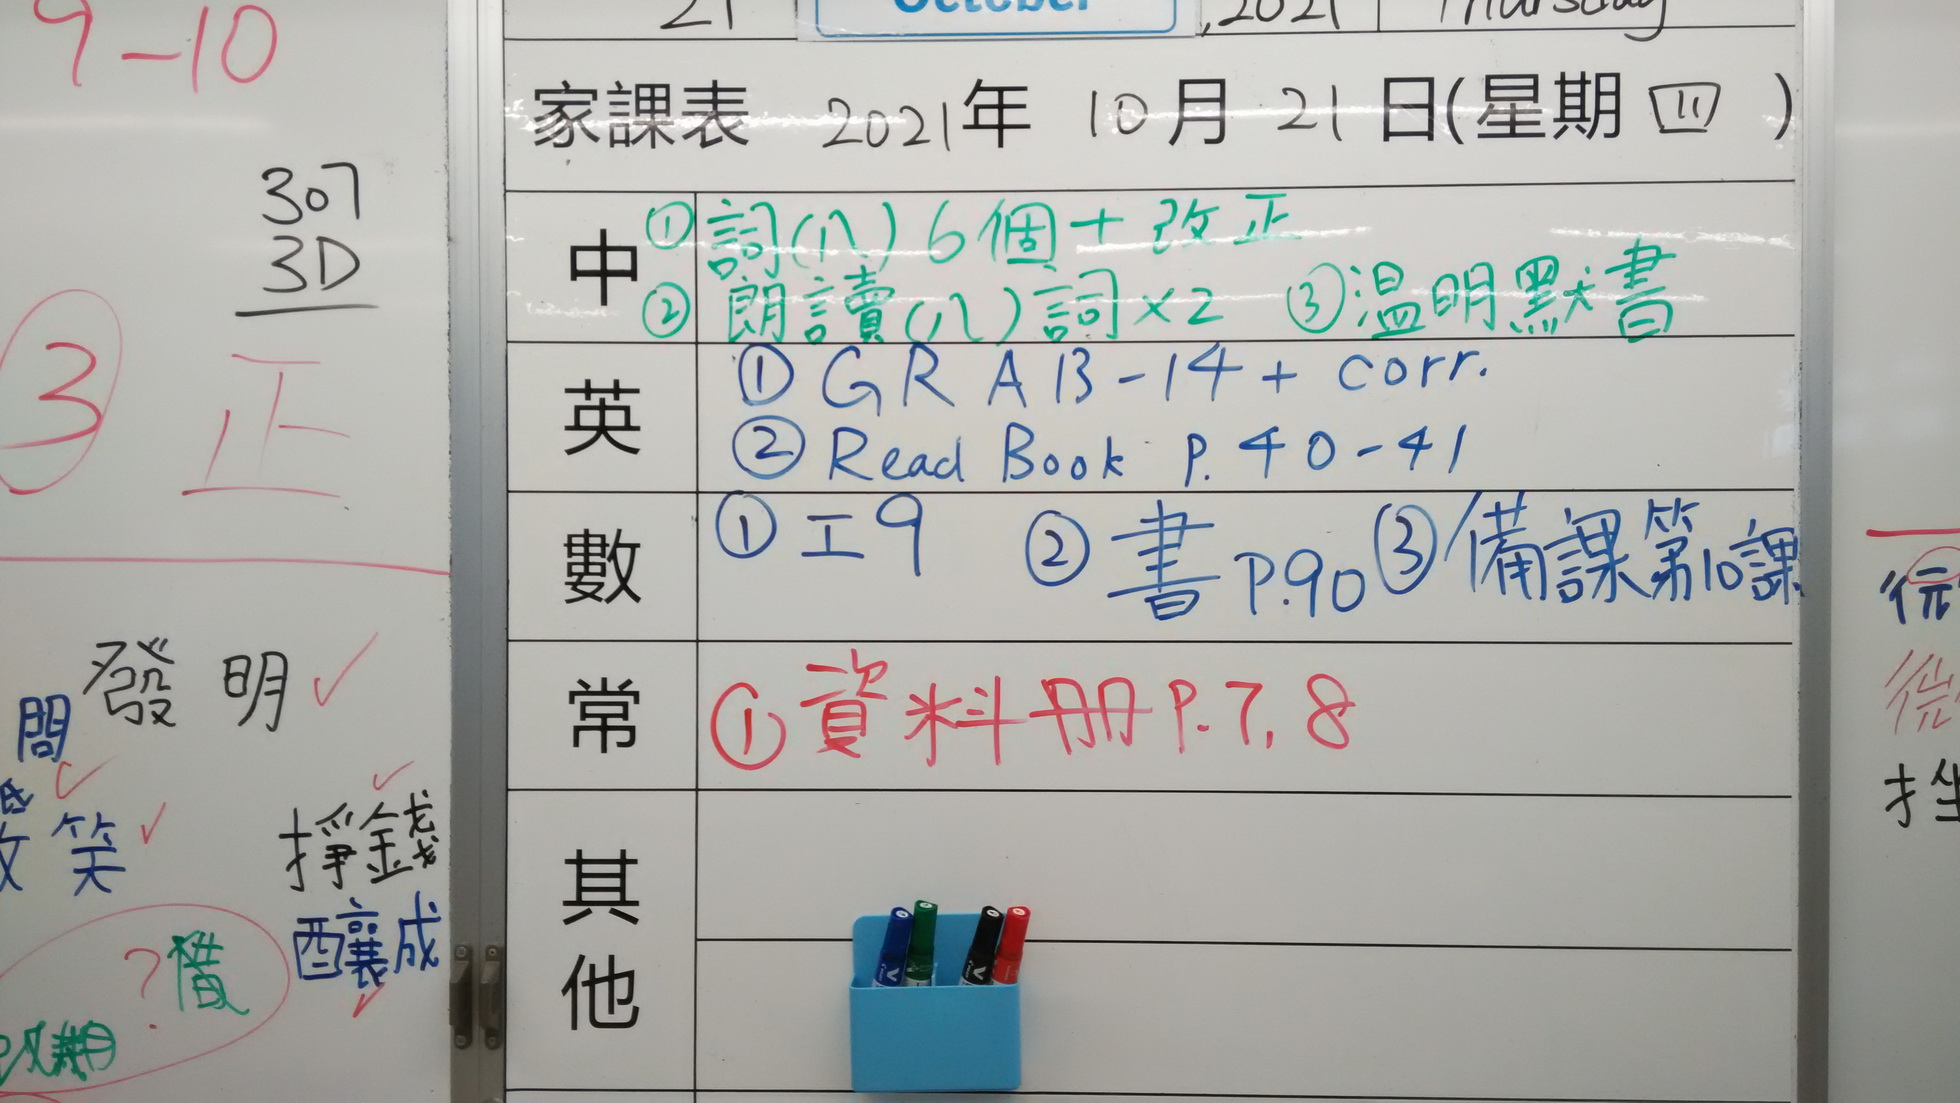 9-10
307
3D
3 正
發明
問
笑
掙錢
釀成
?
21 October, 2021 Thursday
家課表 2021年 10月 21日(星期四)
中 ① 詞(八) 6個+改正
② 朗讀(八)詞×2 ③溫明默書
英 ① GR A13-14 + corr.
② Read Book P. 40-41
數 ① 工9 ② 書 P.90 ③ 備課第10課
常 ① 資料冊 P.7, 8
其他